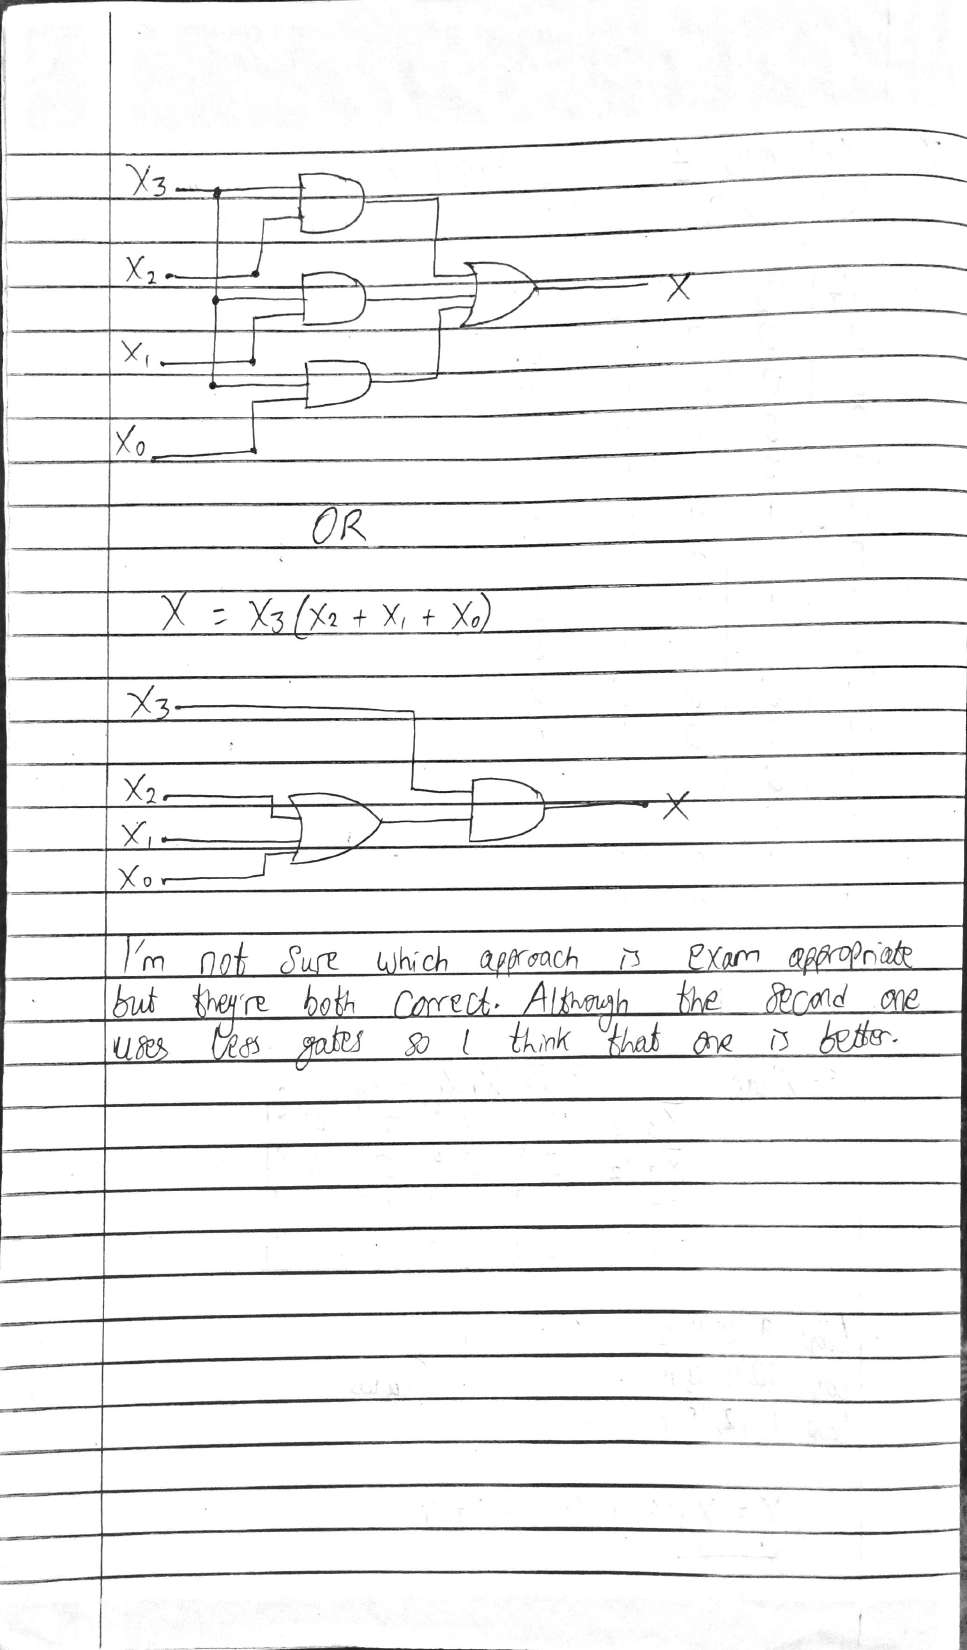 X3
X2
X
X1
X0
OR
X = X3(X2 + X1 + X0)
X3
X2
X
X1
X0
I'm not sure which approach is exam appropriate
but they're both correct. Although the second one
uses less gates so I think that one is better.